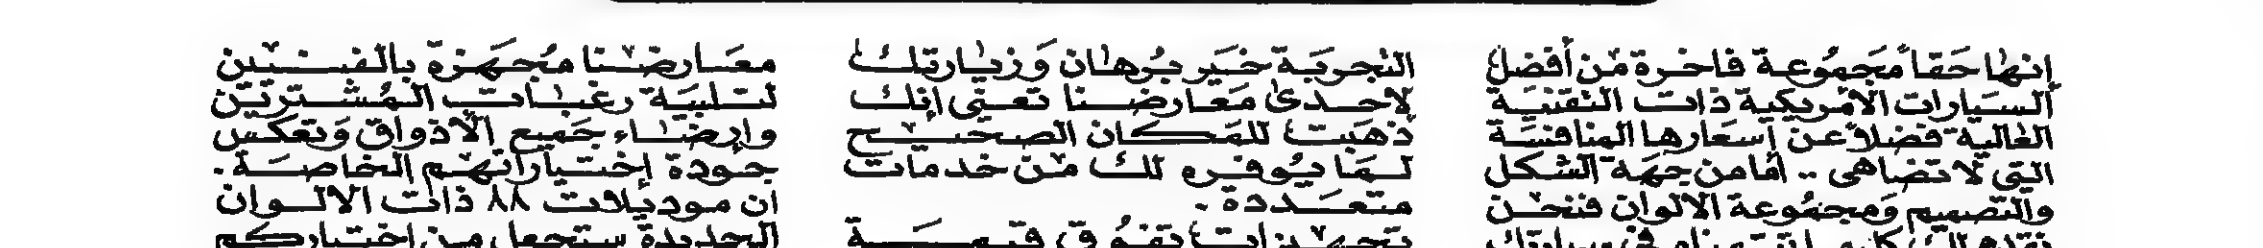 إنها حقاً مجموعة فاخرة من أفضل
السيارات الأمريكية ذات التقنية
العالية فضلاً عن إسعارها المنافسة
التي لا تضاهى .. أما من جهة الشكل
والتصميم ومجموعة الالوان فنحن
نقدم لك كل ما
التجربة خير برهان وزيارتك
لاحدى معارضنا تعني إنك
ذهبت للمكان الصحيح
لما يوفره لك من خدمات
متعددة .
تجهيزات تفوق قيمة
معارضنا مجهزة بالفنيين
لتلبية رغبات المشترين
وإرضاء جميع الأذواق وتعكس
جودة إختياراتهم الخاصة .
ان موديلات ٨٨ ذات الالوان
الجديدة ستجعل من اختياركم